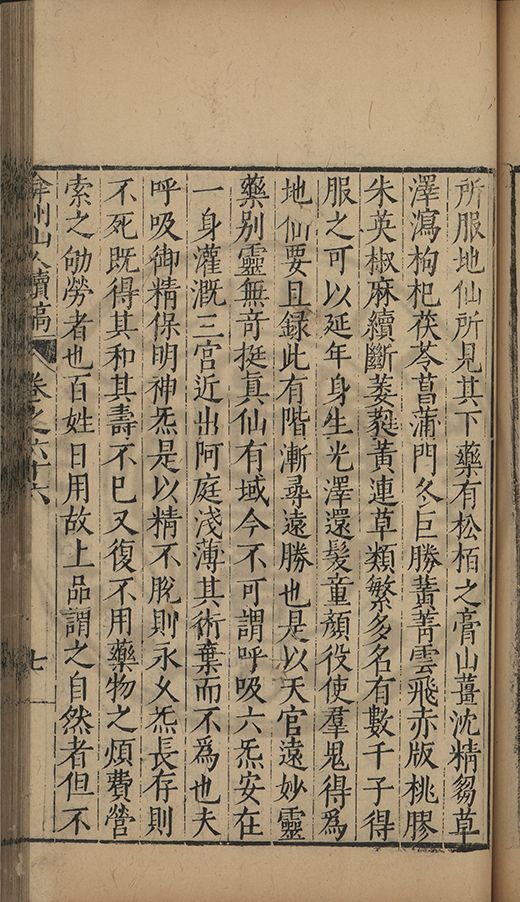 所服地仙所見其下藥有松栢之膏山薑沈精芻草
澤瀉枸杞茯苓菖蒲門冬巨勝黄菁雲飛赤版桃膠
朱英椒麻續斷菱蕤黄連草類繁多名有數千子得
服之可以延年身生光澤還髮童顔役使羣鬼得爲
地仙要且録此有階漸尋遠勝也是以天官遠妙靈
藥别靈無奇挺眞仙有域今不可謂呼吸六炁安在
一身灌溉三宫近出阿庭淺薄其術棄而不爲也夫
呼吸御精保明神炁是以精不脱則永久炁長存則
不死既得其和其壽不已又復不用藥物之煩費營
索之劬勞者也百姓日用故上品謂之自然者但不
弇州山人續稿 卷之六十六 七